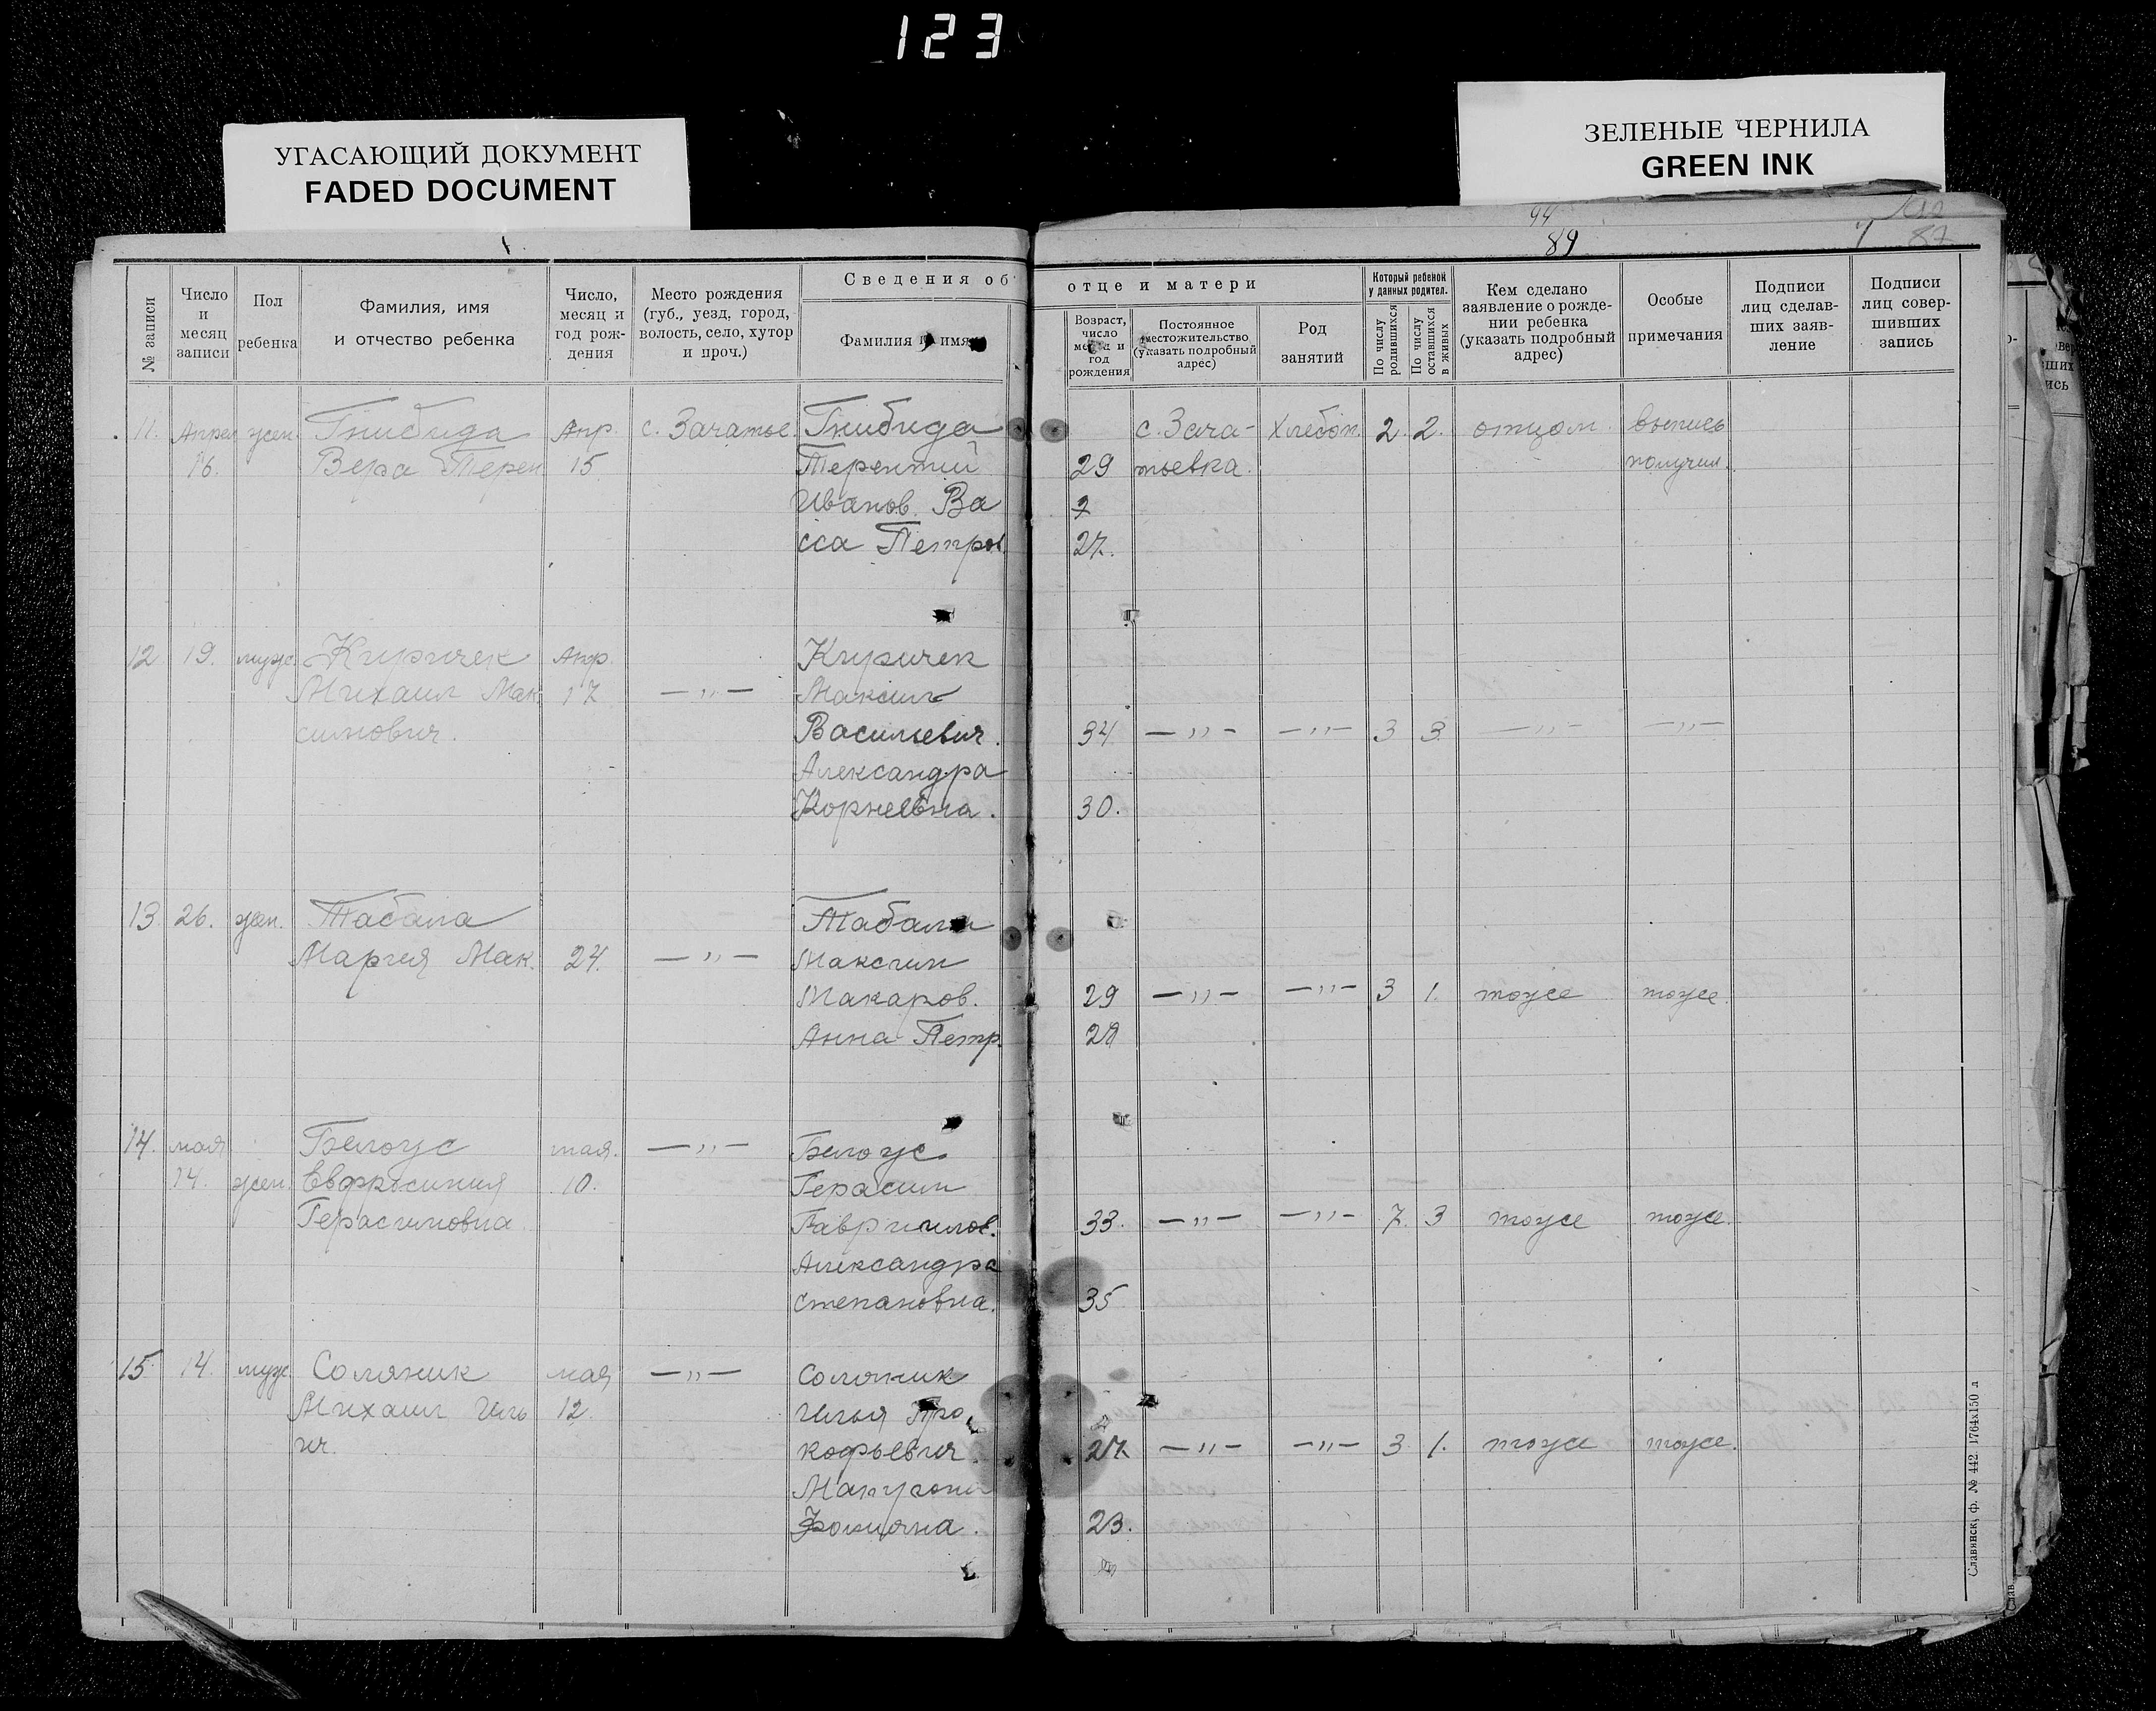 123
УГАСАЮЩИЙ ДОКУМЕНТ
FADED DOCUMENT
ЗЕЛЕНЫЕ ЧЕРНИЛА
GREEN INK
94
89
87
Сведения об отце и матери
№ записи
Число и месяц записи
Пол ребенка
Фамилия, имя и отчество ребенка
Число, месяц и год рождения
Место рождения (губ., уезд, город, волость, село, хутор и проч.)
Фамилия и имя
Возраст, число месяц и год рождения
Постоянное местожительство (указать подробный адрес)
Род занятий
Который ребенок у данных родител.
По числу родившихся
По числу оставшихся в живых
Кем сделано заявление о рождении ребенка (указать подробный адрес)
Особые примечания
Подписи лиц сделавших заявление
Подписи лиц совершивших запись
11. Апрел жен. Гнибида Апр. с. Зачатое. Гнибида с. Зача- Хлебоп. 2. 2. отцом. выпись
16. Вера Терен 15. Терентий 29 тьевка. получил.
Иванов. Ва
сса Петров. 27.
12 19. муж. Киричек Апр. Киричек
Михаил Мак 17 — " — Максим
симович. Васильевич. 34 — " — — " — 3 3. — " — — " —
Александра
Корнеевна. 30.
13. 26. жен. Табала Табала
Мария Мак. 24. — " — Максим
Макаров. 29 — " — — " — 3 1. тоже тоже.
Анна Петр. 28
14. мая Белоус мая. — " — Белоус
14. жен. Евфросиния 10. Герасим
Герасимовна Гавриилов. 33. — " — — " — 7. 3 тоже тоже.
Александра
Степановна. 35
15. 14. муж. Соляник мая — " — Соляник
Михаил Иль 12. Илья Про
ич. кофьевич. 27. — " — — " — 3. 1. тоже тоже.
Фомична. 23.
Славянск, ф. № 442 1764х150 л